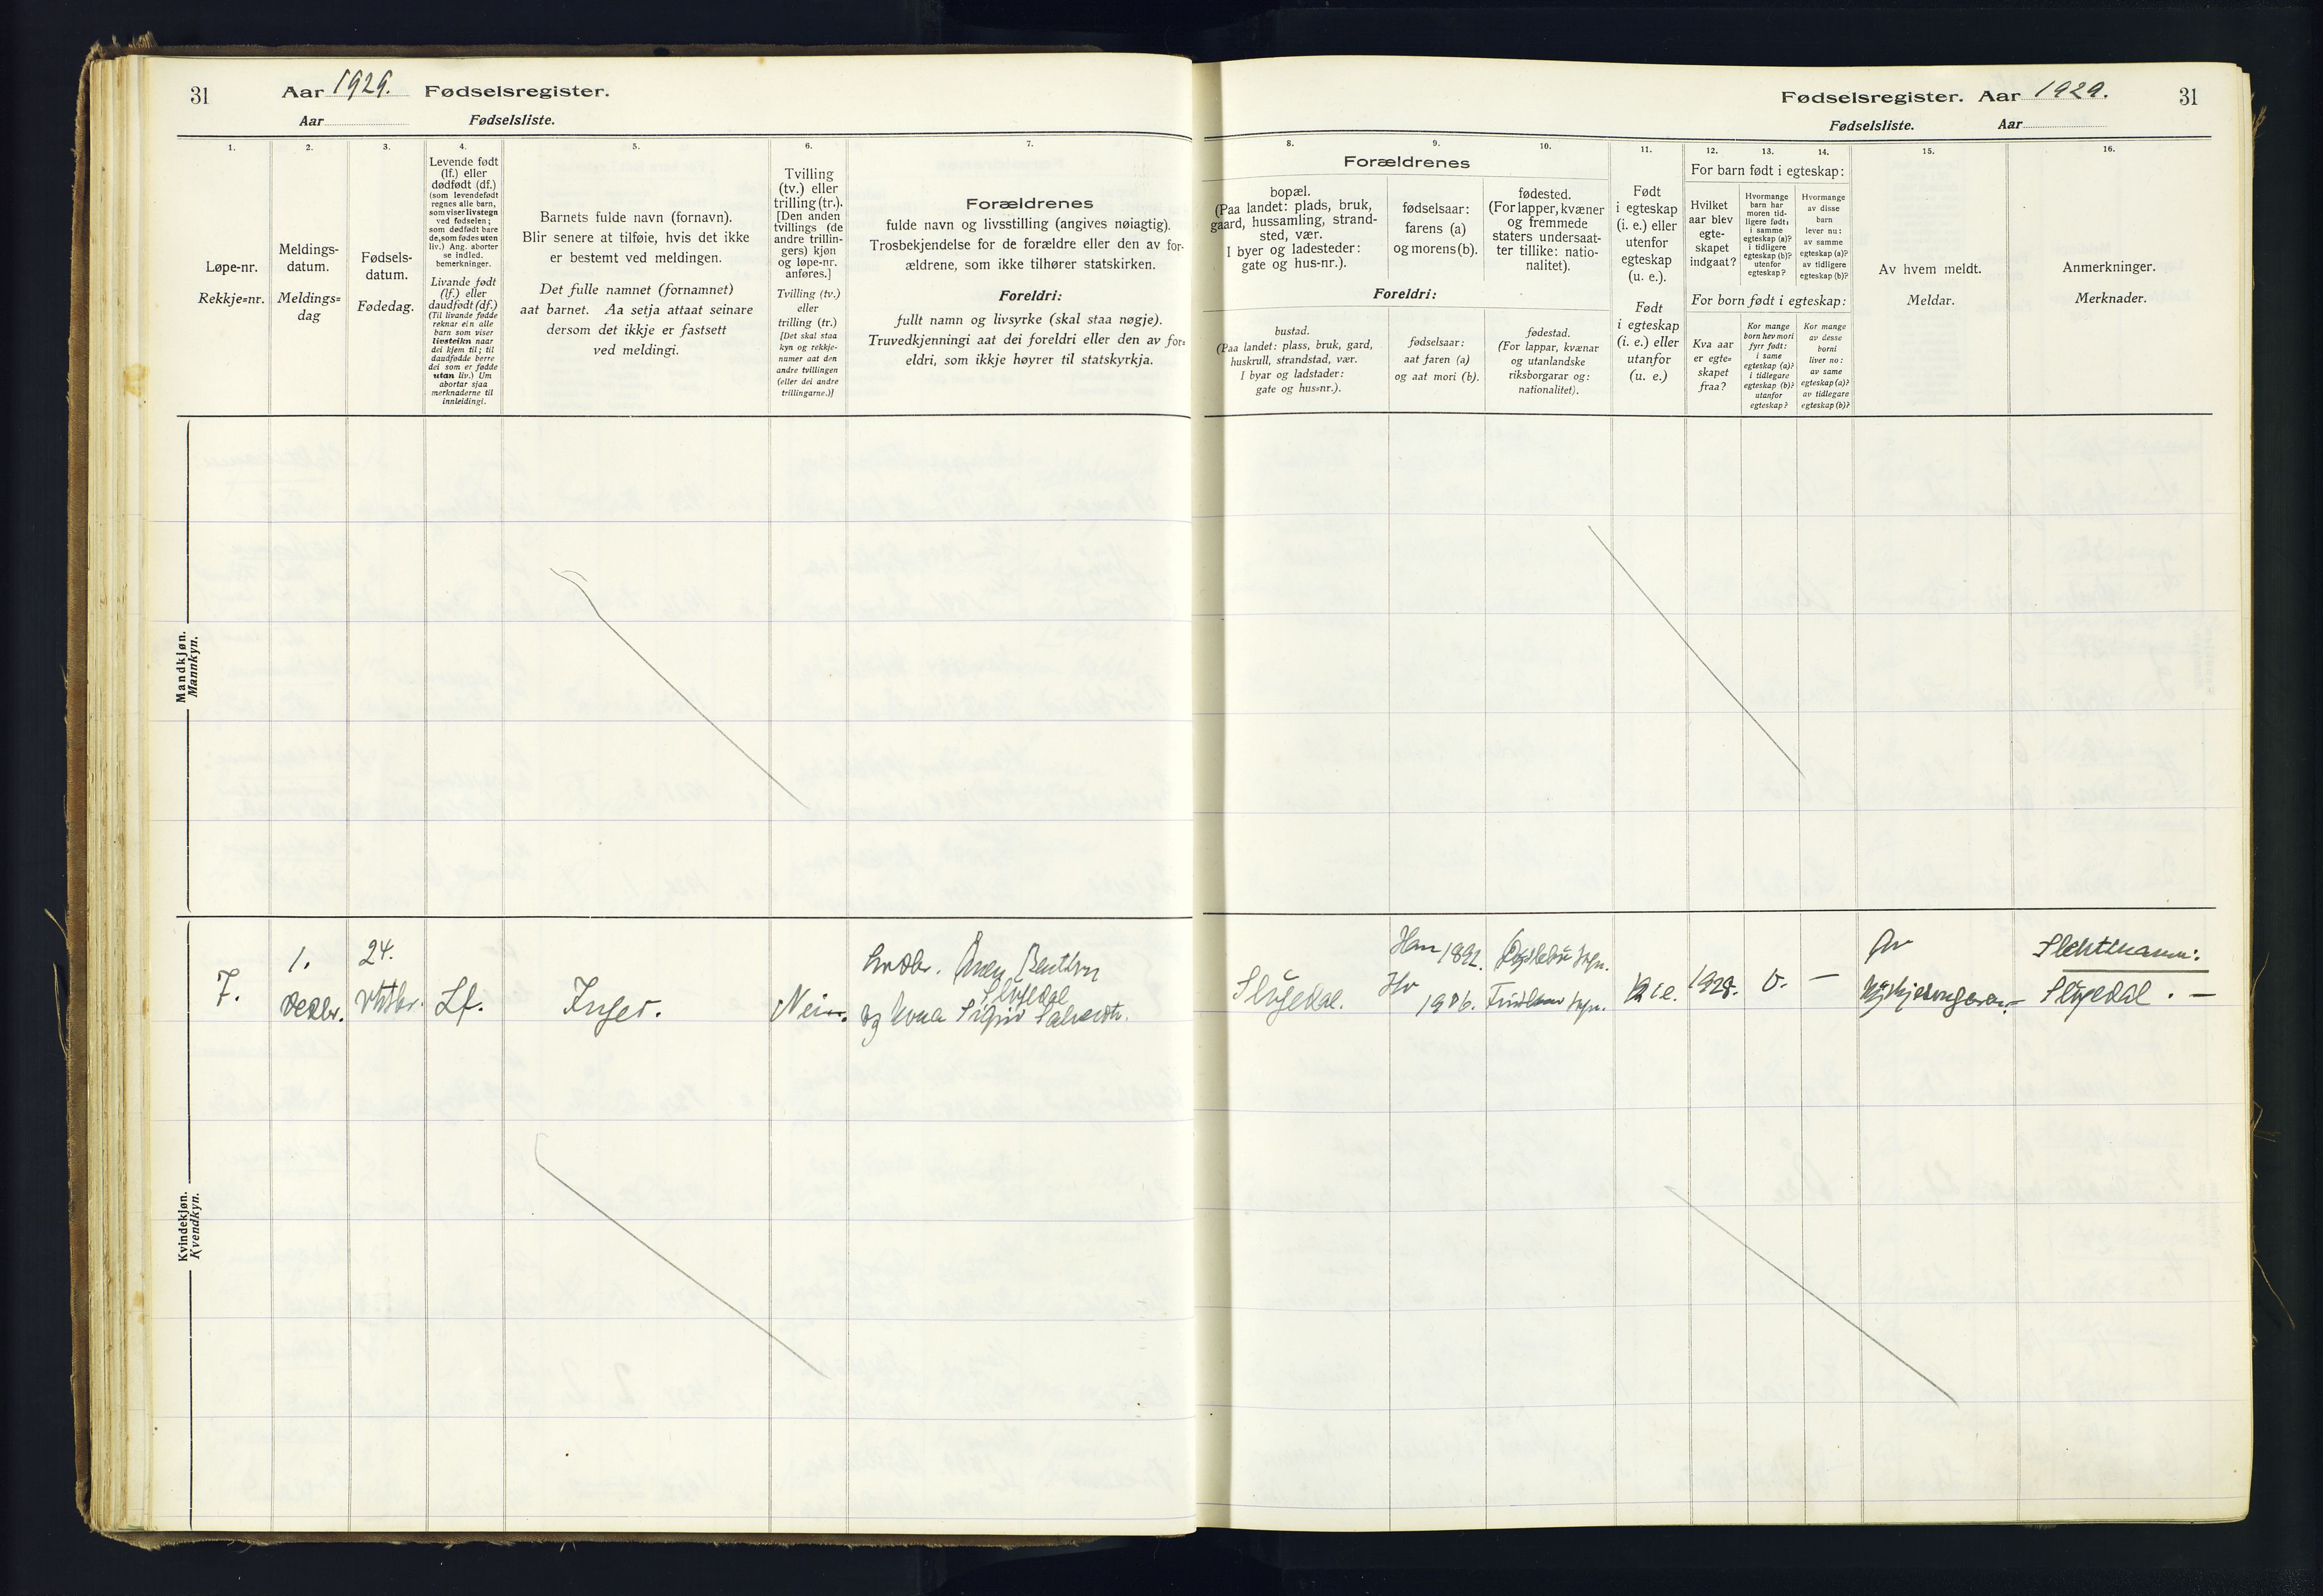 31
Aar 1929. Fødselsregister.
Aar Fødselsliste.
1.
Løpe-nr.
Rekkje=nr.
2.
Meldings-
datum.
Meldings=
dag
3.
Fødsels-
datum.
Fødedag.
4.
Levende født
(lf.) eller
dødfødt (df.)
(som levendefødt
regnes alle barn,
som viser livstegn
ved fødselen;
som dødfødt bare
de, som fødes uten
liv.) Ang. aborter
se indled.
bemerkninger.
Livande født
(lf.) eller
daudfødt (df.)
(Til livande fødde
reknar ein alle
barn som viser
livsteikn naar
dei kjem til; til
daudfødde berre
dei som er fødde
utan liv.) Um
abortar sjaa
merknaderne til
innleidingi.
5.
Barnets fulde navn (fornavn).
Blir senere at tilføie, hvis det ikke
er bestemt ved meldingen.
Det fulle namnet (fornamnet)
aat barnet. Aa setja attaat seinare
dersom det ikkje er fastsett
ved meldingi.
6.
Tvilling
(tv.) eller
trilling (tr.).
[Den anden
tvillings (de
andre trillin-
gers) kjøn
og løpe-nr.
anføres.]
Tvilling (tv.)
eller
trilling (tr.)
[Det skal staa
kyn og rekkje-
numer aat den
andre tvillingen
(eller dei andre
trillingarne.)]
7.
Forældrenes
fulde navn og livsstilling (angives nøiagtig).
Trosbekjendelse for de forældre eller den av for-
ældrene, som ikke tilhører statskirken.
Foreldri:
fullt namn og livsyrke (skal staa nøgje).
Truvedkjenningi aat dei foreldri eller den av for=
eldri, som ikkje høyrer til statskyrkja.
Mandkjøn.
Mannkyn.
7.
1.
desbr.
24.
Lf.
Inger.
Nei
Slygedal
og kona
Kvindekjøn.
Kvendkyn.
Fødselsregister. Aar 1929. 31
Fødselsliste. Aar
8.
Forældrenes
bopæl.
(Paa landet: plads, bruk,
gaard, hussamling, strand-
sted, vær.
I byer og ladesteder:
gate og hus-nr.).
9.
fødselsaar:
farens (a)
og morens (b).
10.
fødested.
(For lapper, kvæner
og fremmede
staters undersaat-
ter tillike: natio-
nalitet).
Foreldri:
bustad.
(Paa landet: plass, bruk, gard,
huskrull, strandstad, vær.
I byar og ladstader:
gate og hus=nr.).
fødselsaar:
aat faren (a)
og aat mori (b).
fødestad.
(For lappar, kvænar
og utanlandske
riksborgarar og:
nationalitet).
11.
Født
i egteskap
(i. e.) eller
utenfor
egteskap
(u. e.).
Født
i egteskap
(i. e.) eller
utanfor
(u. e.)
For barn født i egteskap:
12.
Hvilket
aar blev
egte-
skapet
indgaat?
13.
Hvormange
barn har
moren tid-
ligere født:
i samme
egteskap (a)?
i tidligere
egteskap (b)?
utenfor
egteskap?
14.
Hvormange
av disse
barn
lever nu:
av samme
egteskap (a)?
av tidligere
egteskap (b)?
For born født i egteskap:
Kva aar
er egte=
skapet
fraa?
Kor mange
born hev mori
fyrr født:
i same
egteskap (a)?
i tidlegare
egteskap (b)?
utanfor
egteskap?
Kor mange
av desse
borni
liver no:
av same
egteskap (a)?
av tidlegare
egteskap (b)?
15.
Av hvem meldt.
Meldar.
16.
Anmerkninger.
Merknader.
Slygedal.
1892.
1906.
i.e.
1928.
0. –
Av
Slektsnamn:
Slygedal. –